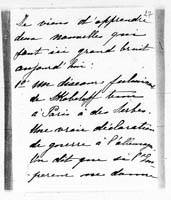 Je viens d'apprendre
deux nouvelles qui
font ici grand bruit
aujourd'hui :
1° Un discours
de Skobeleff tenu
à Paris à des Serbes.
Une vraie déclaration
de guerre à l'Allemagne.
On dit que si l'Em
pereur ne donne